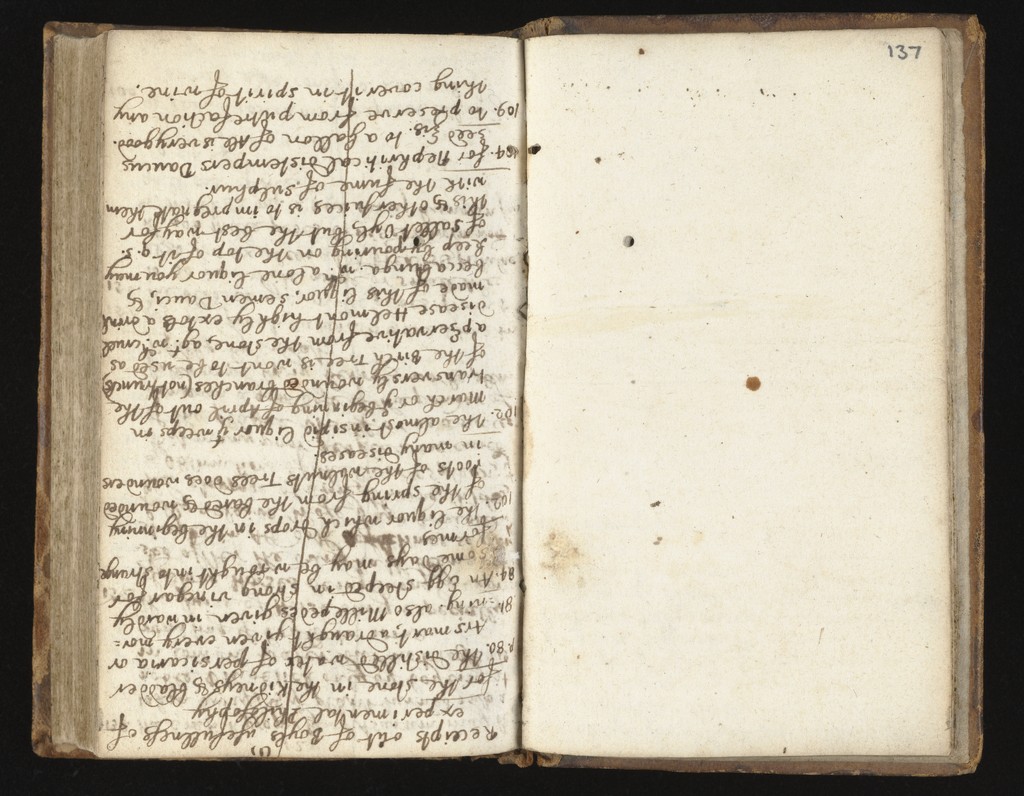 137
(1)
Receipts out of Boyls usefullness of
experimental Philosophy
for the stone in the Kidneys & bladder
p. 80. the distilled water of persicaria or
Arsmart, a draught given every mor=
81. ning. also Millepedes given inwardly
84. An Egg steeped in strong vinegar for
some days may be wrought into strange
formes
102. the liquor which drops in the beginning
of the spring from the bared & wounded
roots of the walnuts Trees does wounders
in many diseases.
102. the almost insipid liquor yt weeps in
March or ye beginning of April out of the
transversly wounded branches (not trunck)
of the Birch Tree is wont to be used as
a pservative from the stone, agt. wch. cruel
disease Helmont highly extols a drink
made of this liquor, semen Dauci, &
beccabunga. wth. alone liquor you may
keep by pouring on the top of it q. s.
of sallet oyle, but the best way for
this & other juices is to impregnate them
with the fume of sulphur.
104. for Nephritical distempers Daucus
seed ℥is. to a gallon of Ale is very good.
109. to pserve from putrefaction any
thing cover it in spirit of wine.